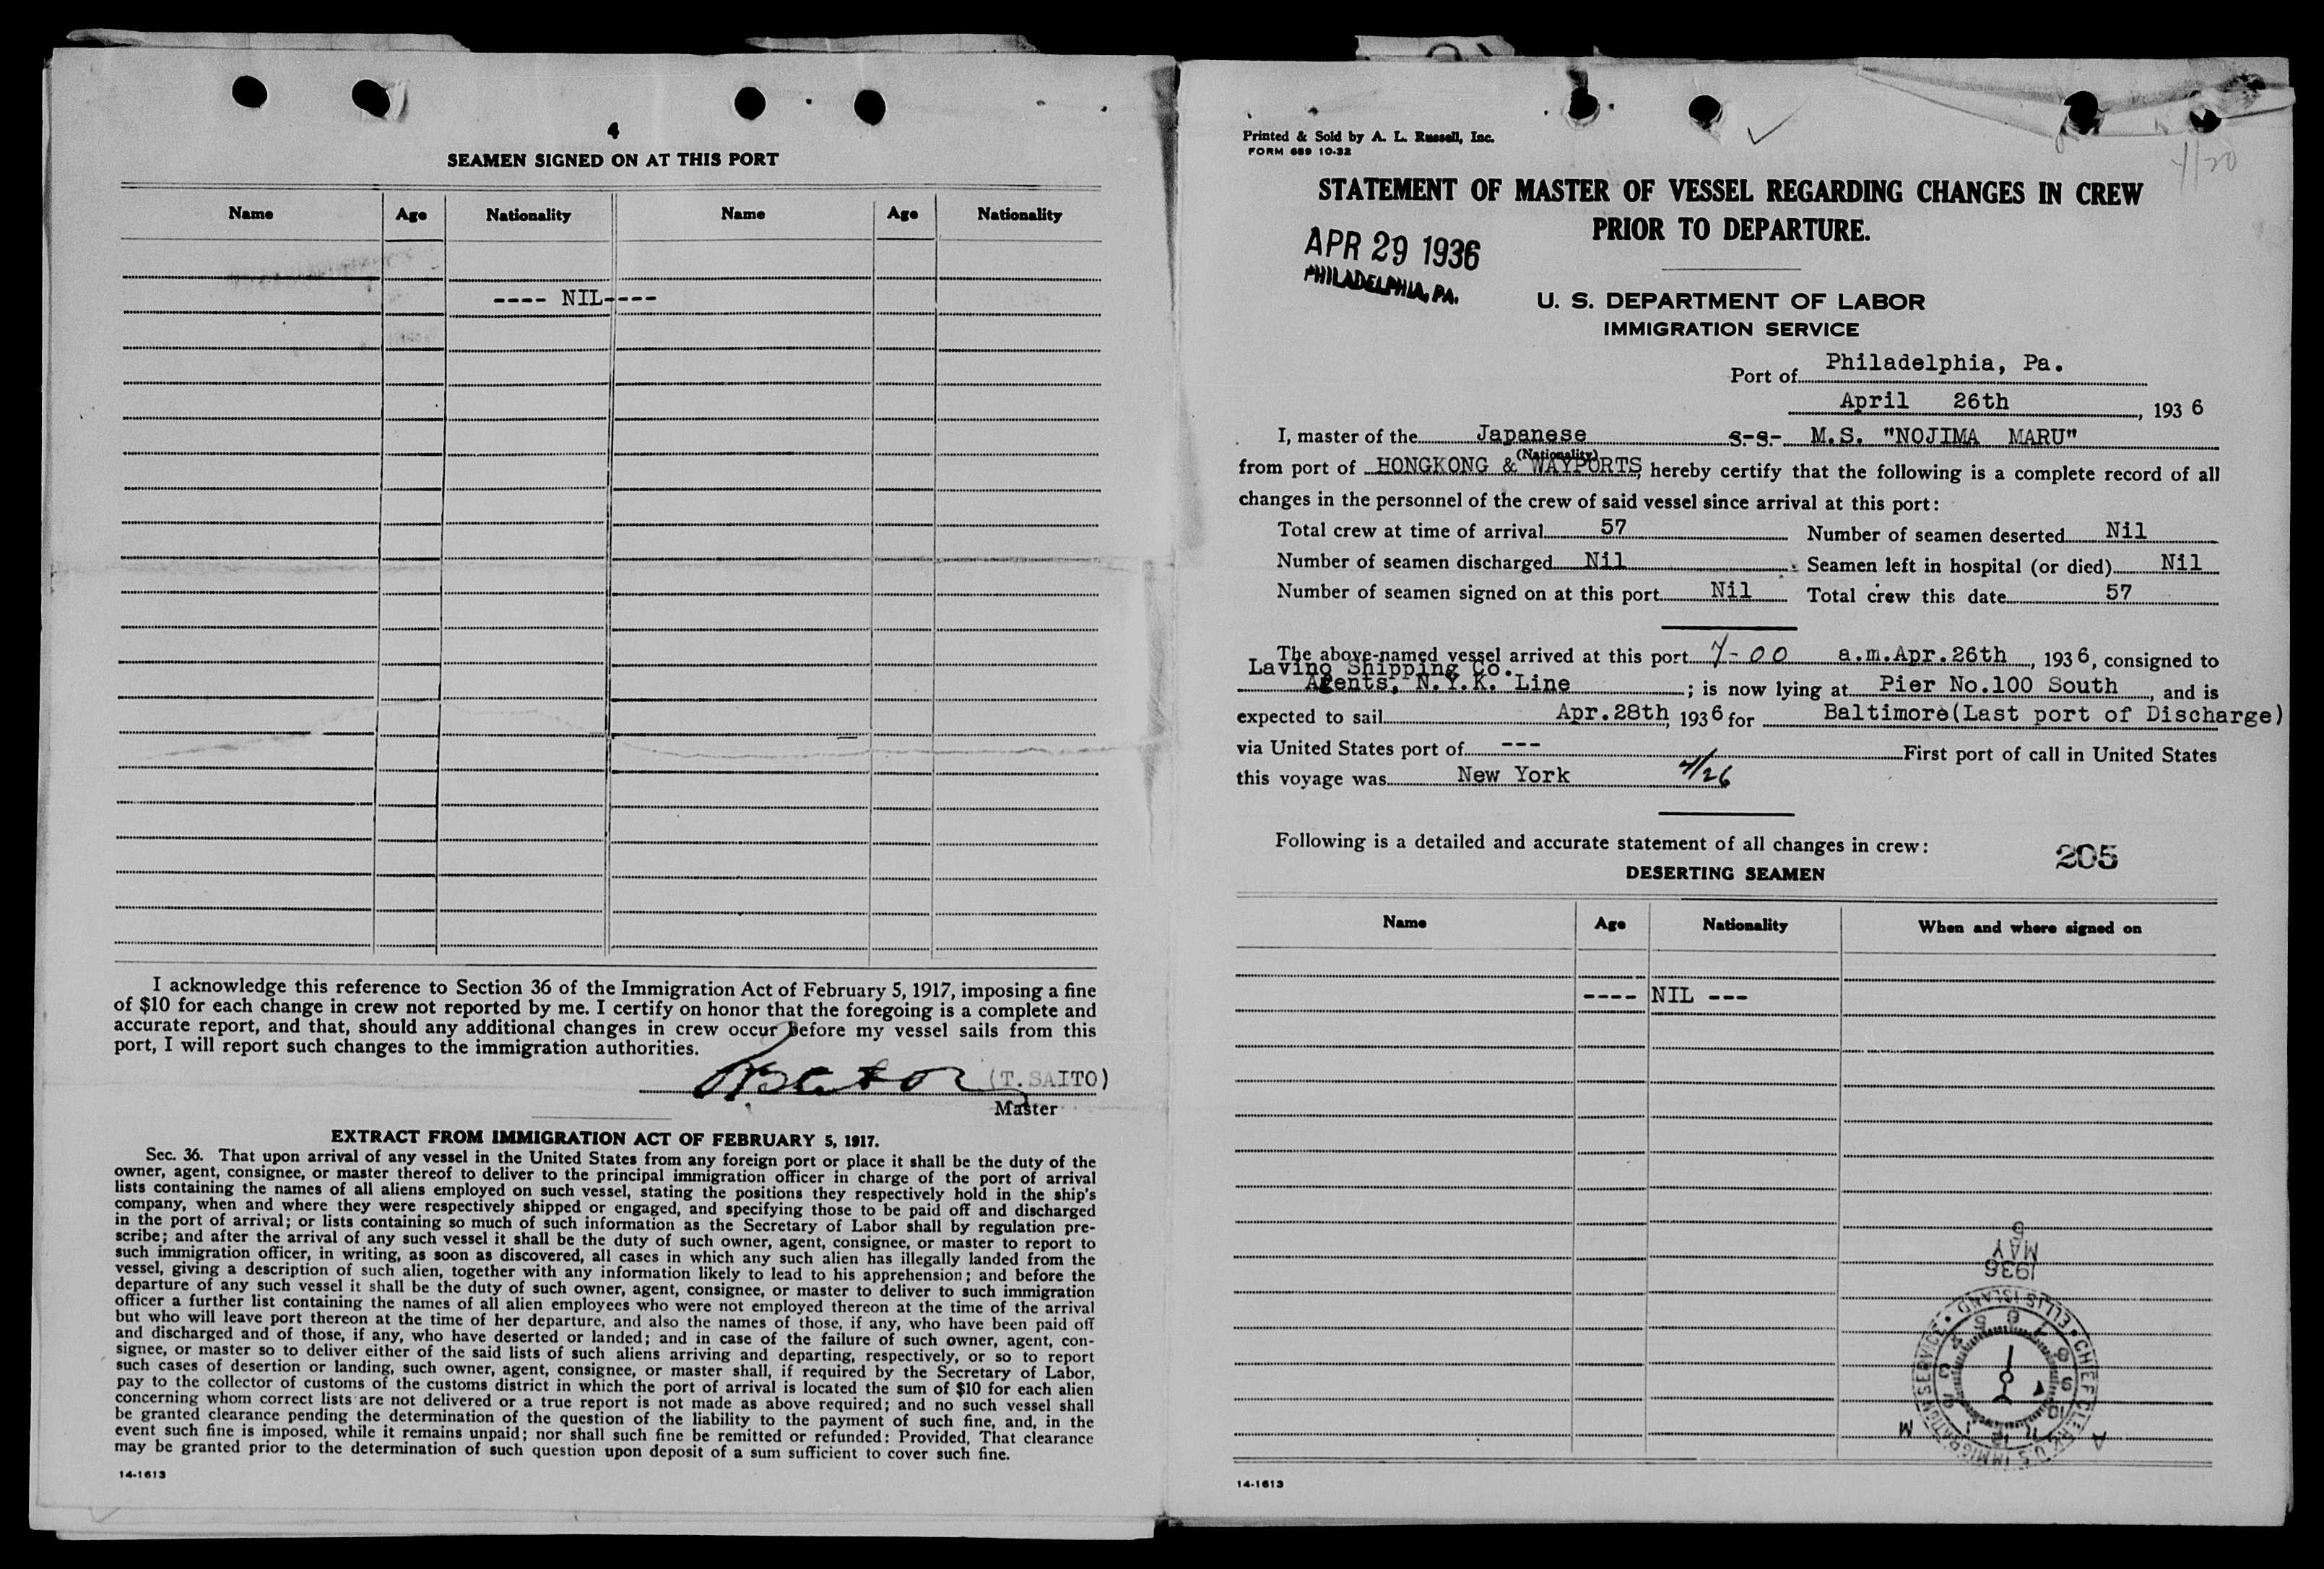 4
SEAMEN SIGNED ON AT THIS PORT
Name Age Nationality Name Age Nationality
---- NIL----
I acknowledge this reference to Section 36 of the Immigration Act of February 5, 1917, imposing a fine
of $10 for each change in crew not reported by me. I certify on honor that the foregoing is a complete and
accurate report, and that, should any additional changes in crew occur before my vessel sails from this
port, I will report such changes to the immigration authorities.
(T. SAITO)
Master
EXTRACT FROM IMMIGRATION ACT OF FEBRUARY 5, 1917.
Sec. 36. That upon arrival of any vessel in the United States from any foreign port or place it shall be the duty of the
owner, agent, consignee, or master thereof to deliver to the principal immigration officer in charge of the port of arrival
lists containing the names of all aliens employed on such vessel, stating the positions they respectively hold in the ship's
company, when and where they were respectively shipped or engaged, and specifying those to be paid off and discharged
in the port of arrival; or lists containing so much of such information as the Secretary of Labor shall by regulation pre-
scribe; and after the arrival of any such vessel it shall be the duty of such owner, agent, consignee, or master to report to
such immigration officer, in writing, as soon as discovered, all cases in which any such alien has illegally landed from the
vessel, giving a description of such alien, together with any information likely to lead to his apprehension; and before the
departure of any such vessel it shall be the duty of such owner, agent, consignee, or master to deliver to such immigration
officer a further list containing the names of all alien employees who were not employed thereon at the time of the arrival
but who will leave port thereon at the time of her departure, and also the names of those, if any, who have been paid off
and discharged and of those, if any, who have deserted or landed; and in case of the failure of such owner, agent, con-
signee, or master so to deliver either of the said lists of such aliens arriving and departing, respectively, or so to report
such cases of desertion or landing, such owner, agent, consignee, or master shall, if required by the Secretary of Labor,
pay to the collector of customs of the customs district in which the port of arrival is located the sum of $10 for each alien
concerning whom correct lists are not delivered or a true report is not made as above required; and no such vessel shall
be granted clearance pending the determination of the question of the liability to the payment of such fine, and, in the
event such fine is imposed, while it remains unpaid; nor shall such fine be remitted or refunded: Provided, That clearance
may be granted prior to the determination of such question upon deposit of a sum sufficient to cover such fine.
14-1613
Printed & Sold by A. L. Russell, Inc.
FORM 689 10-32
4/20
STATEMENT OF MASTER OF VESSEL REGARDING CHANGES IN CREW
PRIOR TO DEPARTURE.
APR 29 1936
PHILADELPHIA, PA.
U. S. DEPARTMENT OF LABOR
IMMIGRATION SERVICE
Port of Philadelphia, Pa.
April 26th, 1936
I, master of the Japanese s-s- M.S. "NOJIMA MARU"
(Nationality)
from port of HONGKONG & WAYPORTS, hereby certify that the following is a complete record of all
changes in the personnel of the crew of said vessel since arrival at this port:
Total crew at time of arrival 57 Number of seamen deserted Nil
Number of seamen discharged Nil Seamen left in hospital (or died) Nil
Number of seamen signed on at this port Nil Total crew this date 57
The above-named vessel arrived at this port 7-00 a.m.Apr.26th, 1936, consigned to
Lavino Shipping Co.
Agents, N.Y.K. Line; is now lying at Pier No.100 South, and is
expected to sail Apr.28th, 1936 for Baltimore(Last port of Discharge)
via United States port of --- First port of call in United States
this voyage was New York 4/26
Following is a detailed and accurate statement of all changes in crew:
205
DESERTING SEAMEN
Name Age Nationality When and where signed on
---- NIL ---
1936
MAY
6
CHIEF CLERK U.S. IMMIGRATION SERVICE • ELLIS ISLAND •
A M
14-1613